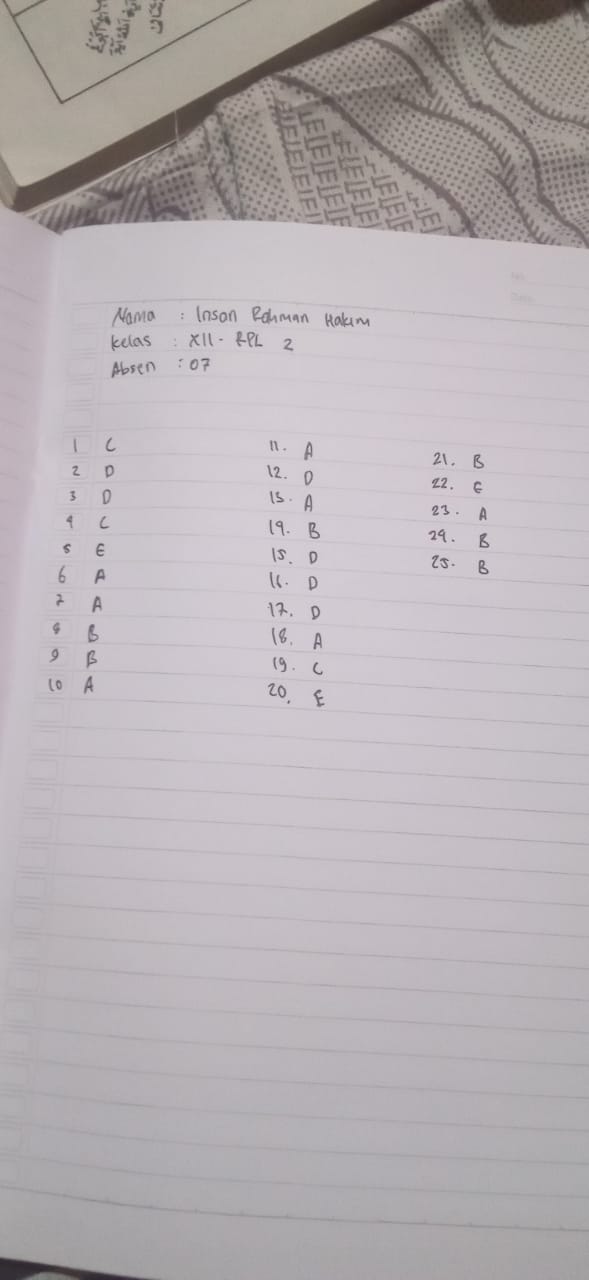 Nama : Insan Rohman Hakim
Kelas : XII - RPL 2
Absen : 07
1 C
2 D
3 D
4 C
5 E
6 A
7 A
8 B
9 B
10 A
11. A
12. D
13. A
14. B
15. D
16. D
17. D
18. A
19. C
20. E
21. B
22. E
23. A
24. B
25. B